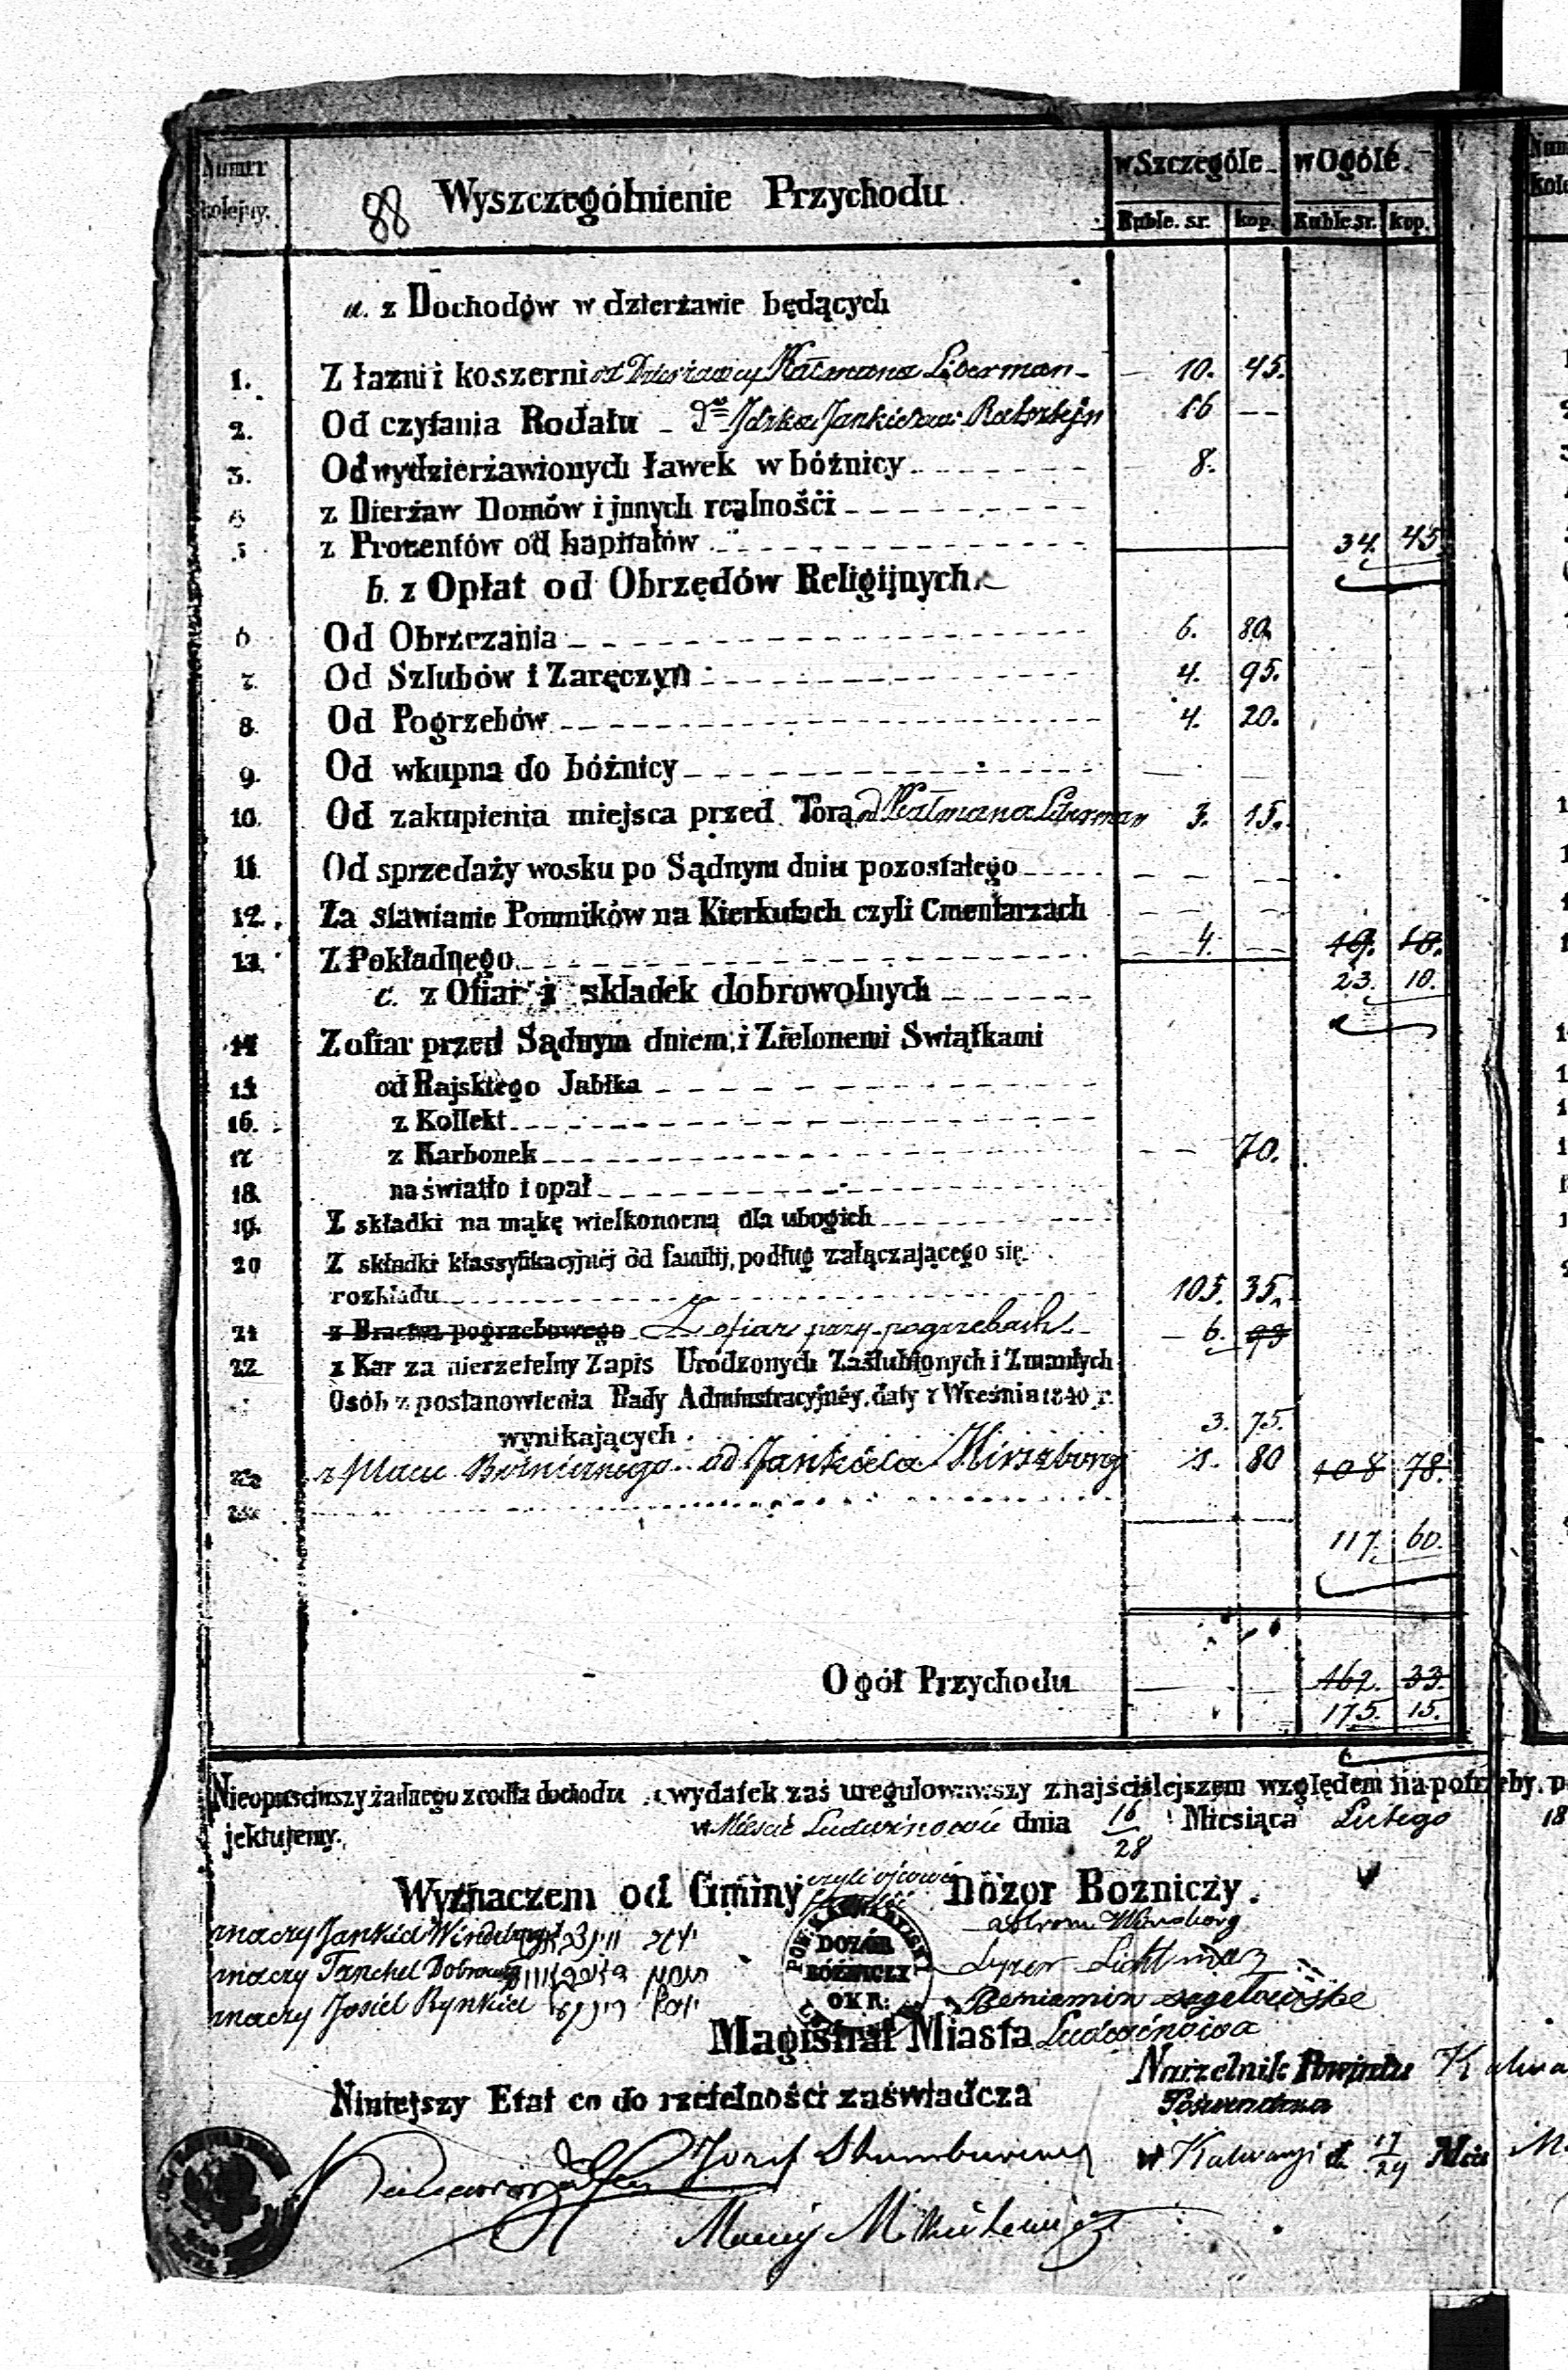 Numer kolejny.
88 Wyszczególnienie Przychodu
w Szczególe. w Ogóle.
Ruble. sr. kop. Ruble. sr. kop.
a. z Dochodów w dzierżawie będących
1. Z łazni i koszerni od Dzierżawcy Kalmana Liberman 10. 45.
2. Od czytania Rodału Jdzka 16 --
3. Od wydzierżawionych ławek w bóżnicy 8.
z Dierżaw Domów i jnnych realnośći
5 z Procentów od kapitałów 34. 45
b. z Opłat od Obrzędów Religijnych
6 Od Obrzezania 6. 80.
7. Od Szlubów i Zaręczyn 4. 95.
8. Od Pogrzebów 4. 20.
9. Od wkupna do bóżnicy
10. Od zakupienia miejsca przed Torą od Kalmana Liberman 3. 15.
11. Od sprzedaży wosku po Sądnym dniu pozostałego
12. Za stawianie Pomników na Kierkutach czyli Cmentarzach
13. Z Pokładnego 4. -- 19. 10.
c. z Ofiar i składek dobrowolnych 23. 10.
14 Z ofiar przed Sądnym dniem, i Zielonemi Swiątkami
15 od Rajskiego Jabłka
16. z Kollekt
17 z Karbonek 70.
18. na światło i opał
19. Z składki na mąkę wielkonocną dla ubogich
20 Z składki klassyfikacyjnéj od familij, podług załączającego się
rozkładu 105. 35.
21 z Bractwa pogrzebowego Z ofiar przy pogrzebach 6.
22 z Kar za nierzetelny Zapis Urodzonych Zaślubionych i Zmarłych
Osób z postanowienia Rady Administracyjnéy, daty 7 Wreśnia 1840 r.
wynikających 3. 75.
z placu Bóżnicznego od Jankiela Hirszberg 1. 80 108 78.
117. 60.
Ogół Przychodu 162. 33.
175. 15.
Nieopuściwszy żadnego zrodła dochodu a wydatek zaś uregulowawszy z najściślejszem względem na potrzeby,
jektujemy. w Mieście Ludwinowie dnia 16/28 Miesiąca Lutego 18
Wyznaczeni od Gminy Dozór Bozniczy.
znaczy Jankiel
znaczy Tanchel
znaczy Josiel Rynkiel
DOZÓR
BÓŻNICZY
OKR:
Lichtman
Beniamin
Magistrat Miasta Ludwinowa
Naczelnik Powiatu
Niniejszy Etat co do rzetelności zaświadcza
Jozef
w Kalwaryi d. 17/29
Maciej